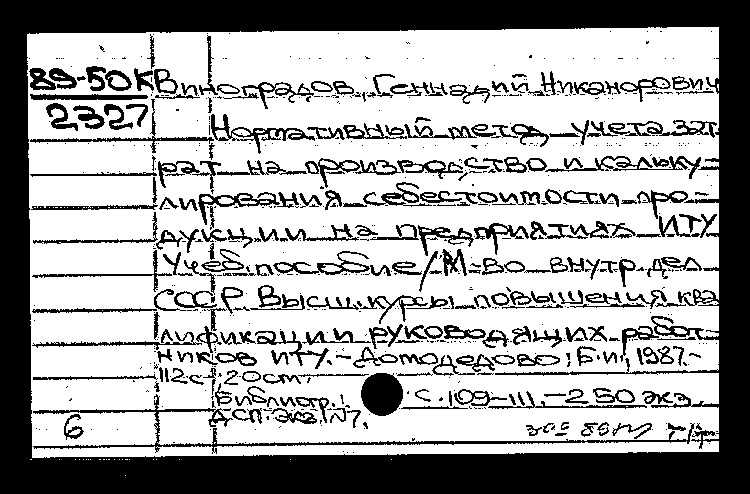 89-50К Виноградов, Геннадий Никанорович
2327 Нормативный метод учета зат
рат на производство и кальку-
лирования себестоимости про-
дукции на предприятиях ИТУ
Учеб. пособие / М-во внутр. дел
СССР. Высш. курсы повышения ква
лификации руководящих работ-
ников ИТУ. - Домодедово: Б. и., 1987. -
112 с.; 20 см.
Библиогр.: с. 109-111. - 250 экз.
ДСП. Экз. №7.
6